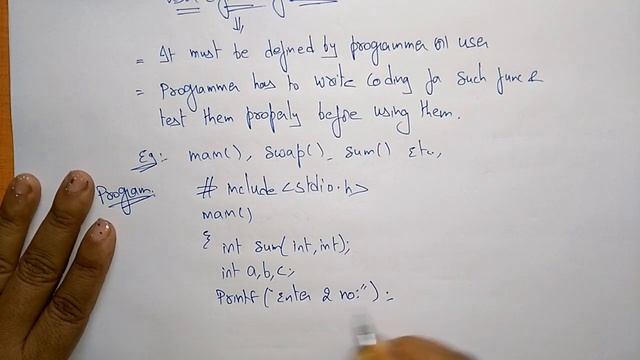 = It must be defined by programmer or user
= Programmer has to write coding for such func &
test them properly before using them.
Eg:- main(), swap(), sum() etc,
Program:
# include <stdio.h>
main()
{ int sum(int,int);
int a,b,c;
Printf ("Enter 2 no:");